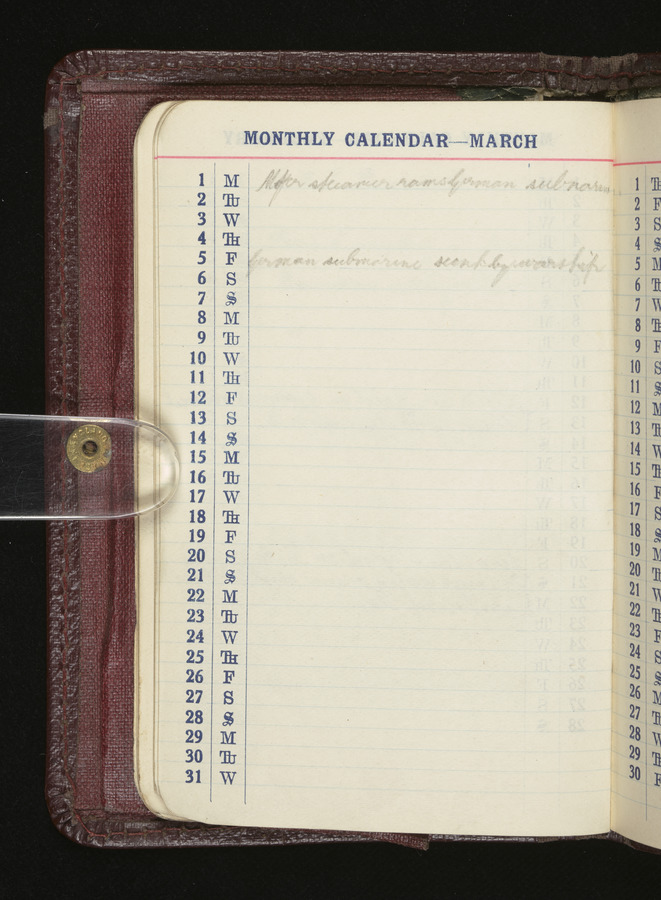 MONTHLY CALENDAR—MARCH
1 M steamer rams german submarine
2 Tu
3 W
4 Th
5 F german submarine sunk by warship
6 S
7 S
8 M
9 Tu
10 W
11 Th
12 F
13 S
14 S
15 M
16 Tu
17 W
18 Th
19 F
20 S
21 S
22 M
23 Tu
24 W
25 Th
26 F
27 S
28 S
29 M
30 Tu
31 W
1 Th
2 F
3 S
4 S
5 M
6 Tu
7 W
8 Th
9 F
10 S
11 S
12 M
13 Tu
14 W
15 Th
16 F
17 S
18 S
19 M
20 Tu
21 W
22 Th
23 F
24 S
25 S
26 M
27 Tu
28 W
29 Th
30 F